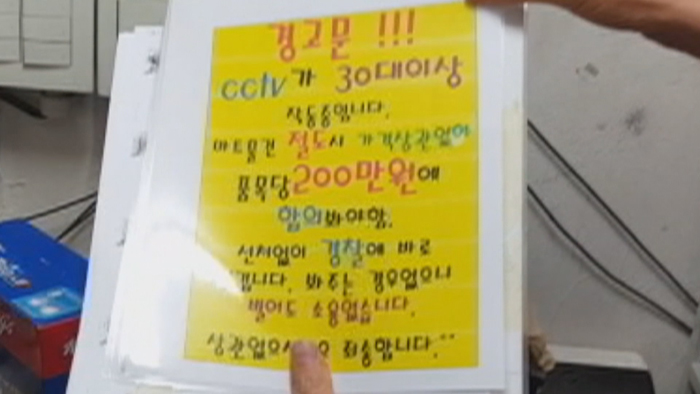 경고문 !!!
cctv가 30대이상
작동중입니다.
마트물건 절도시 가격상관없이
품목당 200만원에
합의봐야함.
선처없이 경찰에 바로
넘깁니다. 봐주는 경우없으니
빌어도 소용없습니다.
죄송합니다.^^